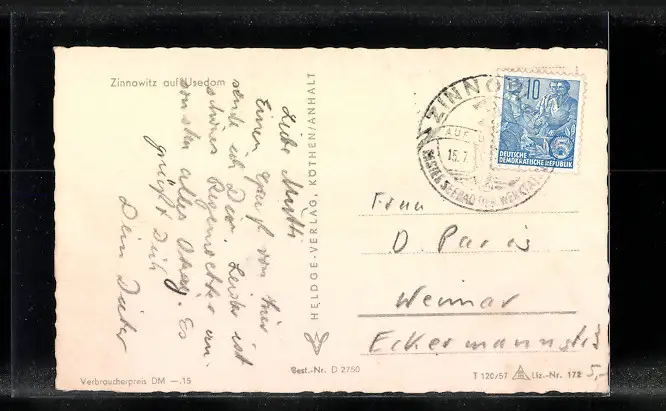 Zinnowitz auf Usedom
Liebe Mutti
Einen Gruß von hier
sende ich Dir. Leider ist
schönes Regenwetter an-
sonsten alles Okay. Es
grüßt Dich
Dein Dieter
HELDGE-VERLAG, KÖTHEN/ANHALT
ZINNO
AUF
15.7.
SEEBAD DER WERKTÄ
10
DEUTSCHE
DEMOKRATISCHE REPUBLIK
5
Frau
D. Paris
Weimar
Eckermannstr
Verbraucherpreis DM —.15
Best.-Nr. D 2750
T 120/57
Liz.-Nr. 172
5,-